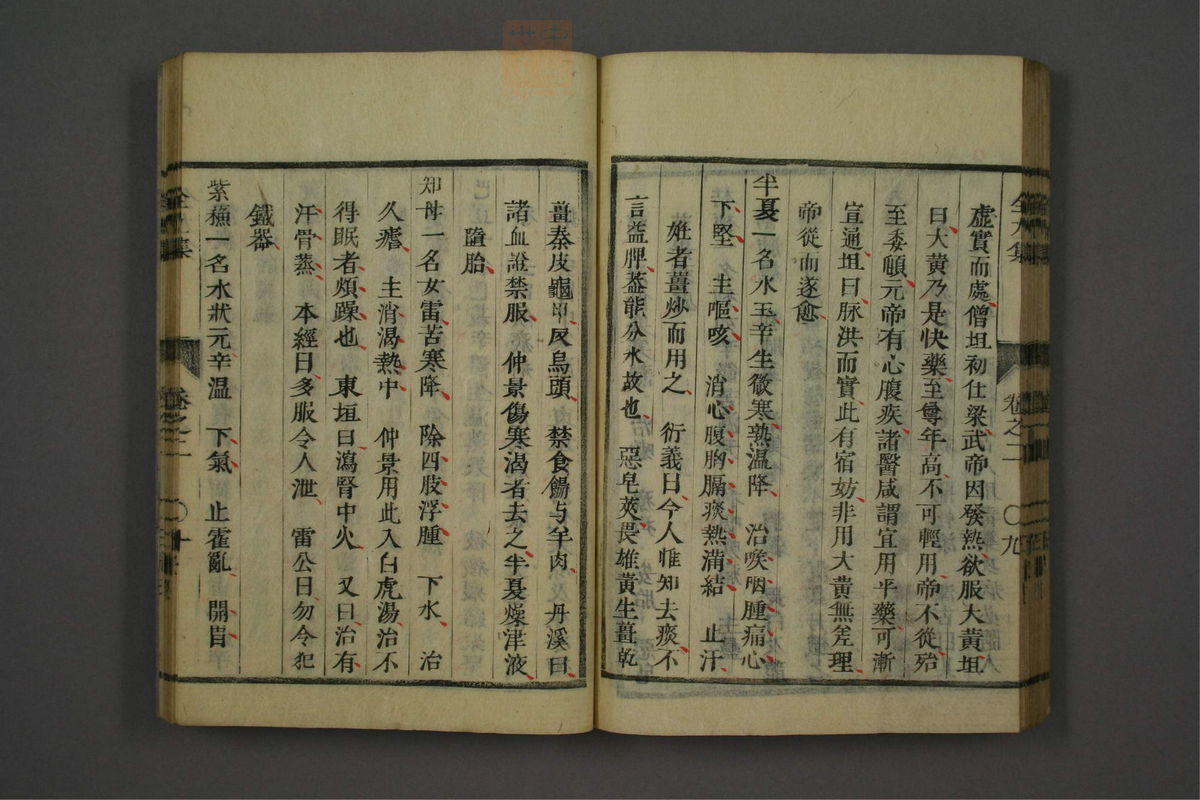 虛實而處僧坦初仕梁武帝因發熱欲服大黃坦
曰大黃乃是快藥至尊年高不可輕用帝不從殆
至委頓元帝有心腹疾諸醫咸謂宜用平藥可漸
宣通坦曰脉洪而實此有宿妨非用大黃無差理
帝從而遂愈
半夏一名水玉辛生微寒熟温降　治喉咽腫痛心
下堅　主嘔咳　消心腹胸膈痰熱滿結　止汗
姙者薑炒而用之　衍義曰今人惟知去痰不
言益脾葢能分水故也　惡皂莢畏雄黃生薑乾
薑秦皮龜甲反烏頭　禁食餳与羊肉　丹溪曰
諸血證禁服　仲景傷寒渴者去之半夏燥津液
墮胎
知母一名女雷苦寒降　除四肢浮腫　下水　治
久瘧　主消渴熱中　仲景用此入白虎湯治不
得眠者煩躁也　東垣曰瀉腎中火　又曰治有
汗骨蒸　本經曰多服令人泄　雷公曰勿令犯
鐵器
紫蘓一名水狀元辛温　下氣　止霍亂　開胃
卷之二
〇九
卷之二
〇十